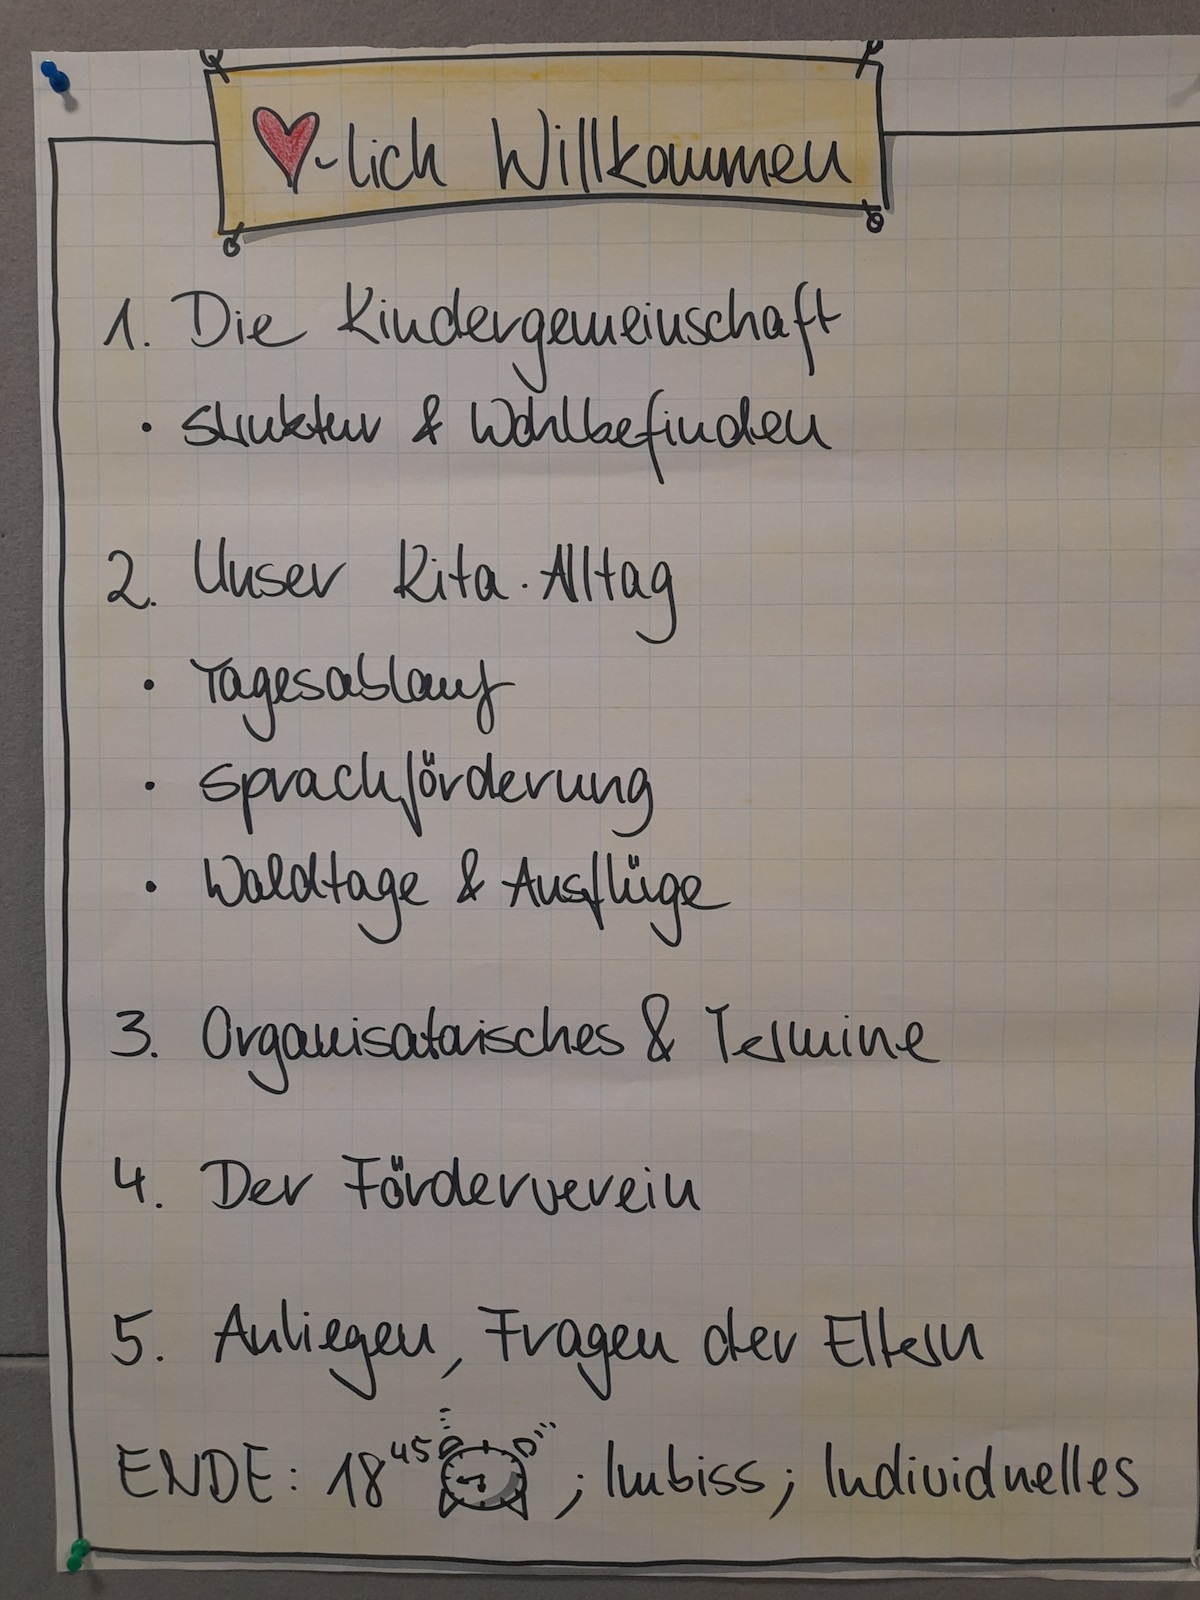 ♥-lich Willkommen
1. Die Kindergemeinschaft
• Struktur & Wohlbefinden
2. Unser Kita-Alltag
• Tagesablauf
• Sprachförderung
• Waldtage & Ausflüge
3. Organisatorisches & Termine
4. Der Förderverein
5. Anliegen, Fragen der Eltern
ENDE: 18⁴⁵ ; Imbiss; Individuelles